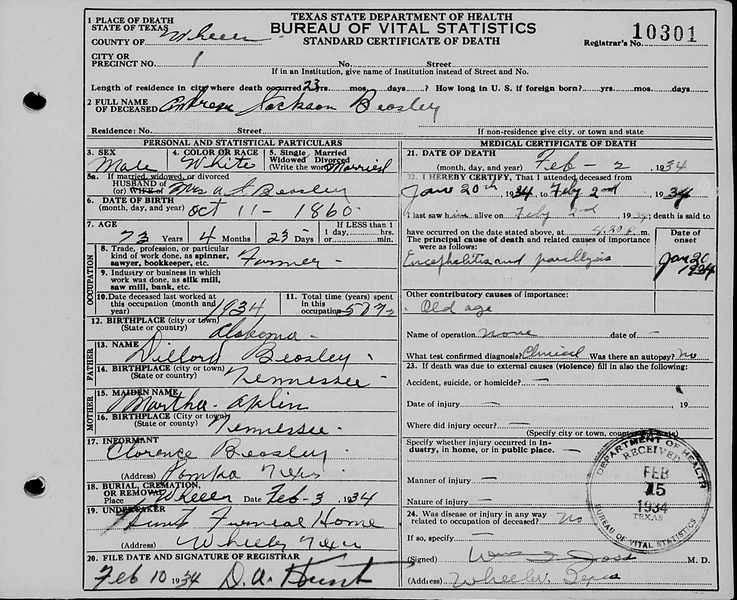 TEXAS STATE DEPARTMENT OF HEALTH
BUREAU OF VITAL STATISTICS
STANDARD CERTIFICATE OF DEATH
Registrar's No. 10301
1 PLACE OF DEATH
STATE OF TEXAS
COUNTY OF Wheeler
CITY OR
PRECINCT NO. 1 No. Street
If in an Institution, give name of Institution instead of Street and No.
Length of residence in city where death occurred 23 yrs. mos. days? How long in U. S. if foreign born? yrs. mos. days
2 FULL NAME
OF DECEASED Andrew Jackson Beasley
Residence: No. Street
If non-residence give city, or town and state
PERSONAL AND STATISTICAL PARTICULARS
3. SEX Male
4. COLOR OR RACE White
5. Single Married
Widowed Divorced
(Write the word) Married
5a. If married, widowed, or divorced
HUSBAND OF
(or) WIFE OF Mrs A J Beasley
6. DATE OF BIRTH
(month, day, and year) Oct 11 - 1860
7. AGE 73 Years 4 Months 23 - Days If LESS than 1
1 day, hrs.
or min.
OCCUPATION
8. Trade, profession, or particular
kind of work done, as spinner,
sawyer, bookkeeper, etc. Farmer
9. Industry or business in which
work was done, as silk mill,
saw mill, bank, etc.
10. Date deceased last worked at
this occupation (month and
year) 1934
11. Total time (years)
spent in this
occupation
12. BIRTHPLACE (city or town)
(State or country) Alabama
FATHER
13. NAME Beasley
14. BIRTHPLACE (City or town)
(State or country) Tennessee
MOTHER
15. MAIDEN NAME Martha Aplin
16. BIRTHPLACE (City or town)
(State or country) Tennessee
17. INFORMANT Clarence Beasley
(Address) Pampa Texas
18. BURIAL, CREMATION,
OR REMOVAL
Place Wheeler Date Feb - 3, 1934
19. UNDERTAKER Hunt Funeral Home
(Address) Wheeler Texas
20. FILE DATE AND SIGNATURE OF REGISTRAR
Feb 10 1934 D. A. Hunt
MEDICAL CERTIFICATE OF DEATH
21. DATE OF DEATH
(month, day, and year) Feb - 2 1934
22. I HEREBY CERTIFY, That I attended deceased from
Jan 20th 1934 to Feb 2nd 1934
I last saw him alive on Feb 2nd 1934; death is said to
have occurred on the date stated above, at 4.20 P. m.
The principal cause of death and related causes of importance
were as follows:
Date of
onset
Encephalitis and paralysis
Jan 20
1934
Other contributory causes of importance:
Old age
Name of operation none date of -
What test confirmed diagnosis? Clinical Was there an autopsy? No
23. If death was due to external causes (violence) fill in also the following:
Accident, suicide, or homicide? —
Date of injury — 19
Where did injury occur? —
(Specify city or town, county and State)
Specify whether injury occurred in in-
dustry, in home, or in public place. —
Manner of injury —
Nature of injury —
24. Was disease or injury in any way
related to occupation of deceased? No
If so, specify —
(Signed) M. D.
(Address) Wheeler, Texas
DEPARTMENT OF HEALTH
RECEIVED
FEB
15
1934
TEXAS
BUREAU OF VITAL STATISTICS